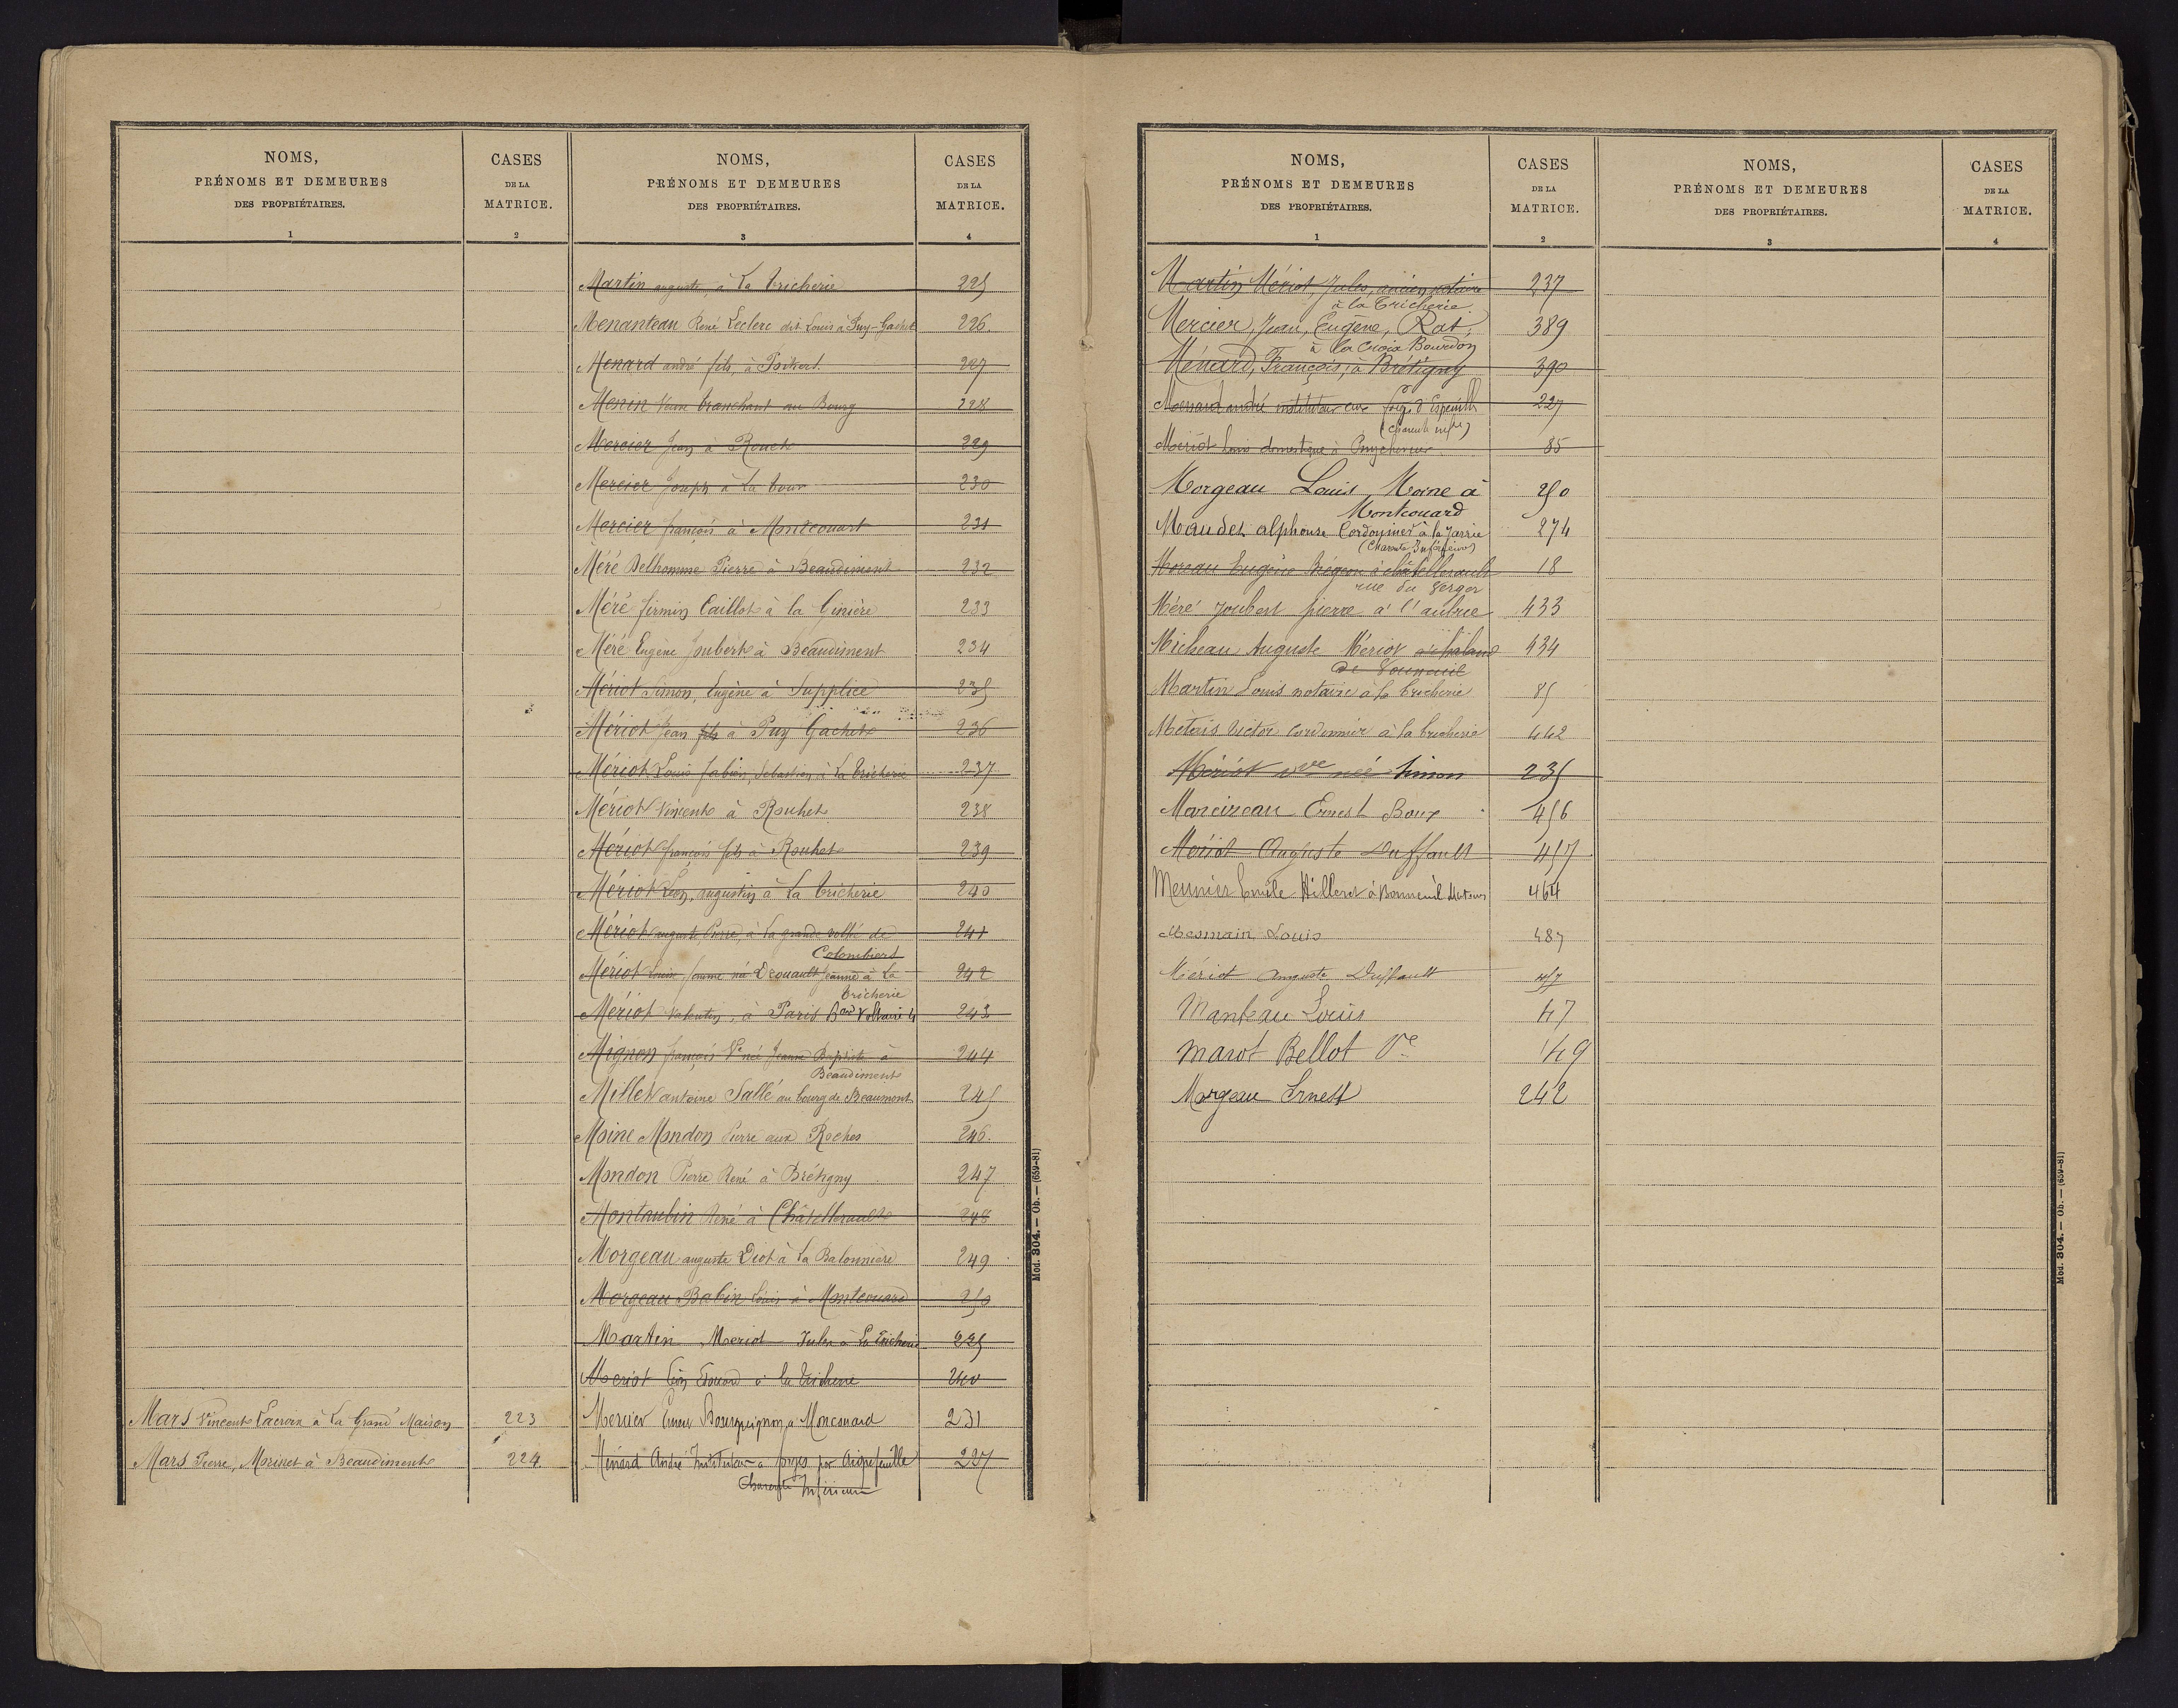 NOMS,
PRÉNOMS ET DEMEURES
DES PROPRIÉTAIRES.
1
CASES
DE LA
MATRICE.
2
Mars Vincent Lacroix à La Grand Maison 223
Mars Pierre, Morinet à Beaudiment 224
NOMS,
PRÉNOMS ET DEMEURES
DES PROPRIÉTAIRES.
3
CASES
DE LA
MATRICE.
4
Martin auguste, à La Tricherie 225
Menanteau René Leclerc dit Louis à Puy-Gachet 226
Menard andré fils, à 227
Menin Veuve tranchant au Bourg 228
Mercier Jean à Rouet 229
Mercier Joseph à La tour 230
Mercier françois à Montcouart 231
Méré Delhomme Pierre à Beaudiment 232
Méré firmin Caillot à la Ginière 233
Méré Eugène Joubert à Beaudiment 234
Mériot Simon, Eugène à Supplice 235
Mériot Jean fils à Puy Gachet 236
Mériot Louis fabien, Sébastien à La Tricherie 237
Mériot Vincent à Rouhet 238
Mériot françois fils à Rouhet 239
Mériot Léon, augustin à La Tricherie 240
Mériot auguste Pierre, à La grande de 241
Colombiers
Mériot Louise femme née Drouault Jeanne à La 242
Tricherie
Mériot Valentin, à Paris Bard Voltaire 4 243
Mignon françois Ve née Jeanne Baptiste à 244
Beaudiment
Millet antoine Sallé au bourg de Beaumont 245
Moine Mondon Pierre aux Roches 246
Mondon Pierre René à Brétigny 247
Montaubin René à Châtellerault 248
Morgeau auguste Diot à La Balonnière 249
Morgeau Babin Louis à Montcouard 250
Martin Meriot Jules à La Tricherie 225
Meriot Léon Edouard à la Tricherie 240
Mercier Bourguignon à Moncouard 231
Ménard André Instituteur à forges par Aigrefeuille 227
Charente Inférieure
Mod. 304. — Ob. — (659-81)
NOMS,
PRÉNOMS ET DEMEURES
DES PROPRIÉTAIRES.
1
CASES
DE LA
MATRICE.
2
Martin Mériot, Jules, ancien notaire 237
à la Tricherie
Mercier, Jean, Eugène, Rat, 389
à la Croix Bourdon
Ménard, François, à Brétigny 390
Menard andré instituteur 227
Meriot Louis domestique à 85
Morgeau Louis, Morne à 250
Montcouard
Maudet alphonse Cordonnier à la Jarrie 274
(Charente Inférieure)
Moreau Eugène à châtellerault 18
rue du Verger
Méré Joubert pierre à l'aubue 433
Micheau Auguste Mériot 434
de Vouneuil
Martin Louis notaire à la tricherie 85
Métais Victor Cordonnier à la tricherie 442
Mériot vve née Simon 235
Marcireau Ernest Boux 456
Mériot Auguste Duffault 457
Meunier Emile Hilleret à Bonneuil Matours 464
Mesmain Louis 487
Mériot Auguste Duffault 457
Manteau Louis 47
Marot Bellot Ve 149
Morgeau Ernest 242
NOMS,
PRÉNOMS ET DEMEURES
DES PROPRIÉTAIRES.
3
CASES
DE LA
MATRICE.
4
Mod. 304. — Ob. — (659-81)